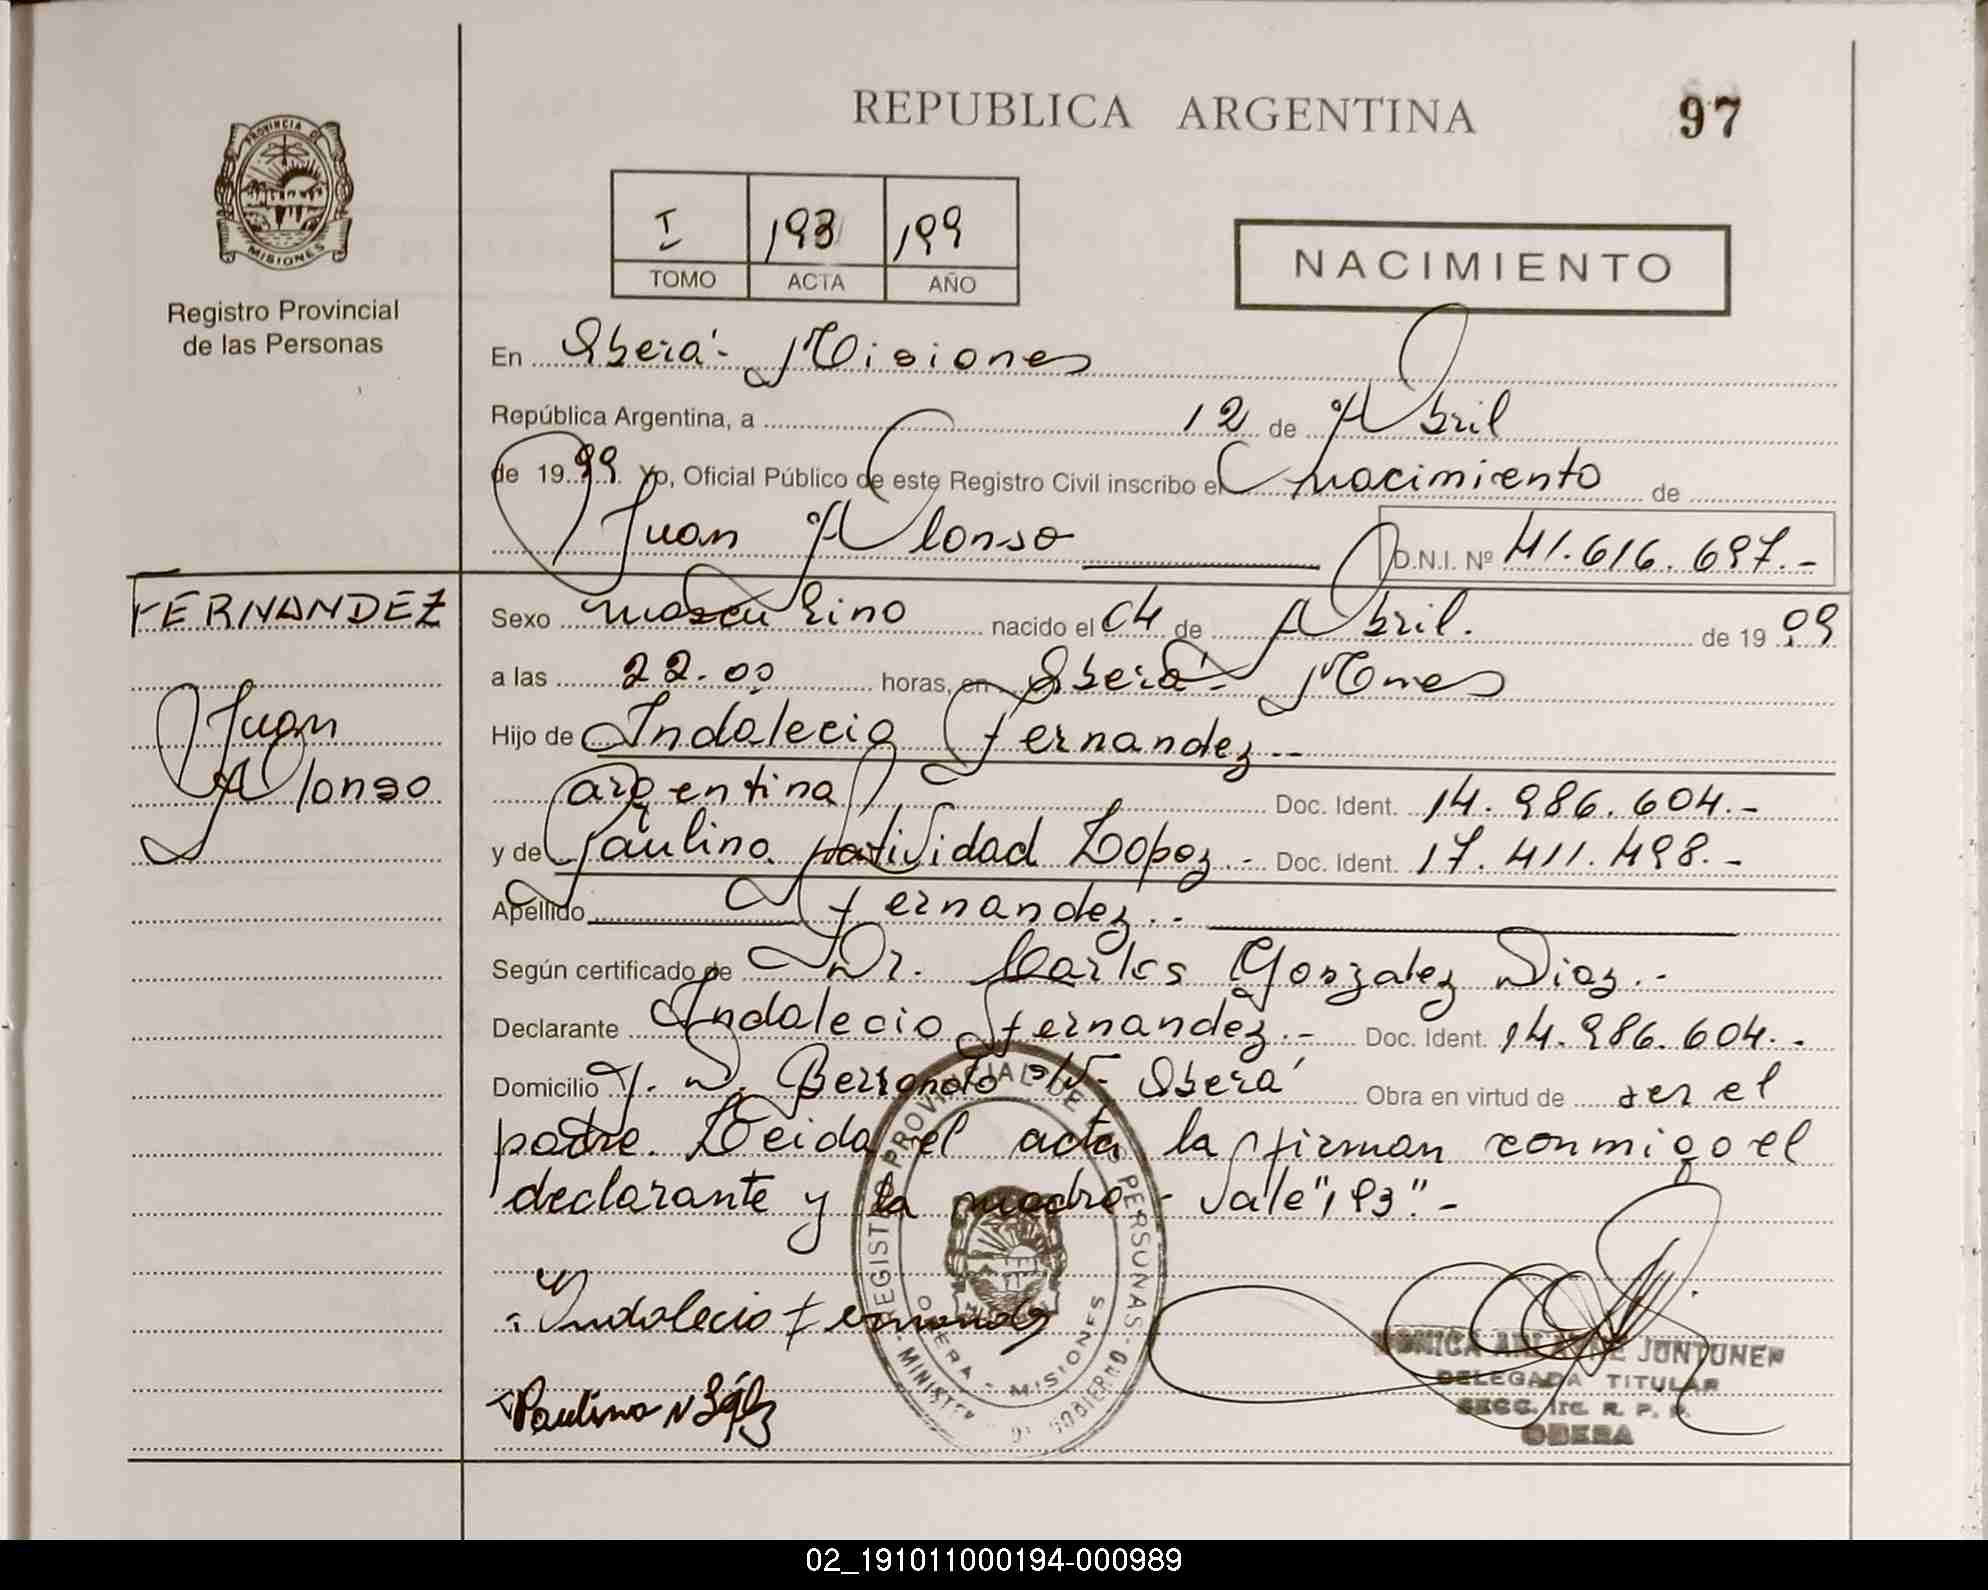 REPUBLICA ARGENTINA
97
PROVINCIA D
MISIONES
Registro Provincial
de las Personas
I 193 199
TOMO ACTA AÑO
NACIMIENTO
En Oberá - Misiones
República Argentina, a 12 de Abril
de 1999 Yo, Oficial Público de este Registro Civil inscribo el nacimiento de
Juan Alonso D.N.I. Nº 41.616.697.-
FERNANDEZ
Juan
Alonso
Sexo masculino nacido el 04 de Abril. de 1999
a las 22.00 horas, en Oberá - Mnes
Hijo de Indalecio Fernandez --
argentina Doc. Ident. 14.986.604.-
y de Paulina Natividad Lopez.- Doc. Ident. 17.411.498.-
Apellido Fernandez.-
Según certificado de Dr. Carlos Gonzalez Diaz.-
Declarante Indalecio Fernandez.- Doc. Ident. 14.986.604.-
Domicilio Berrondo s/N- Oberá Obra en virtud de ser el
padre. Leida el acta la firman conmigo el
declarante y la madre - Vale "193".-
Indalecio Fernandez
Paulina N López
REGISTRO PROVINCIAL DE LAS PERSONAS - MINISTERIO DE GOBIERNO
OBERA - MISIONES
MONICA JUNTUNEN
DELEGADA TITULAR
SECC. 1ra. R. P. P.
OBERA
02_191011000194-000989